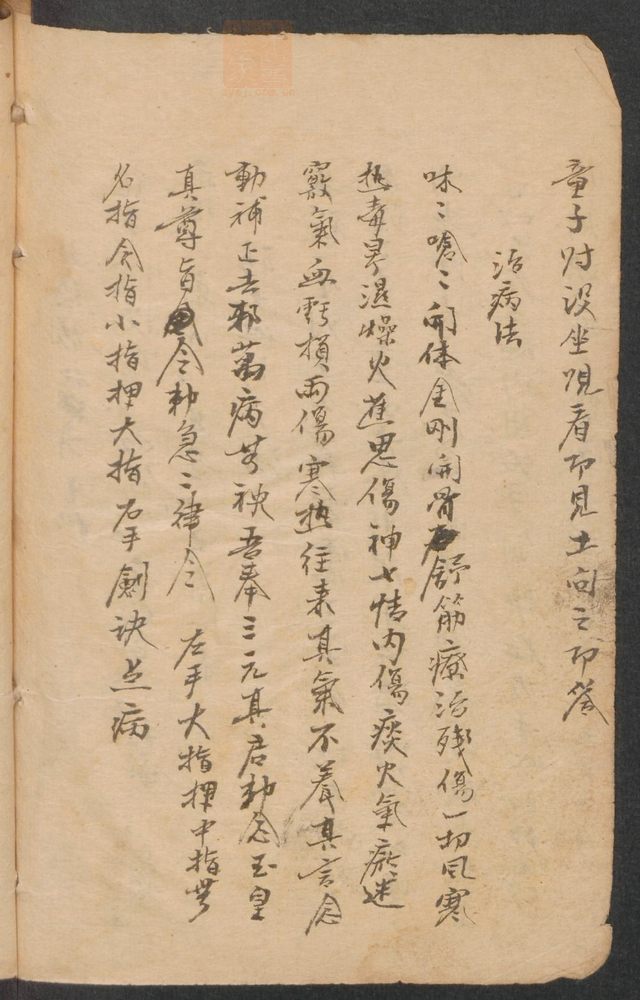 童子对没坐咒看即見土向之即答
治病法
味〻唵〻開体金剛開骨舒筋療治殘傷一切風寒
热毒暑湿燥火蕉思傷神七情内傷痰火氣瘀迷
竅氣血虧損両傷寒热往来真氣不養真言念
動補正去邪萬病無袂吾奉三元真君勅念玉皇
真尊旨令勅急〻律令 左手大指押中指無
名指食指小指押大指右手劍诀点病